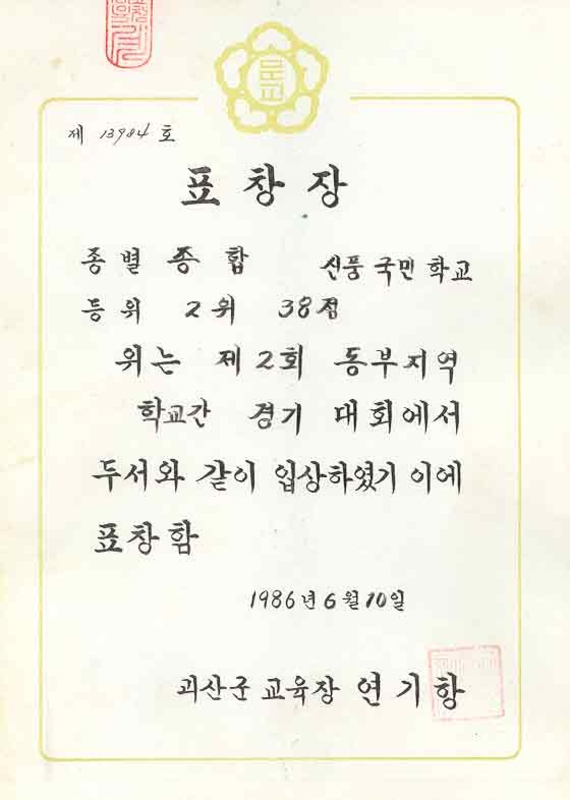 문교
제 13984 호
표창장
종별 종합 신풍국민학교
등위 2위 38점
위는 제2회 동부지역
학교간 경기 대회에서
두서와 같이 입상하였기 이에
표창함
1986년 6월 10일
괴산군 교육장 연기항